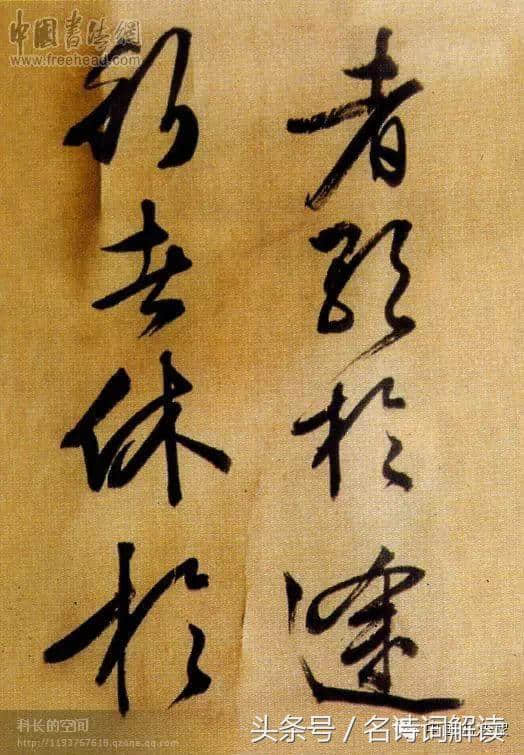 者歌於途
行者休於
中國書法網
www.freehead.com
科长的空间
http://1193767618.qzone.qq.com
头条号 / 名诗词解读